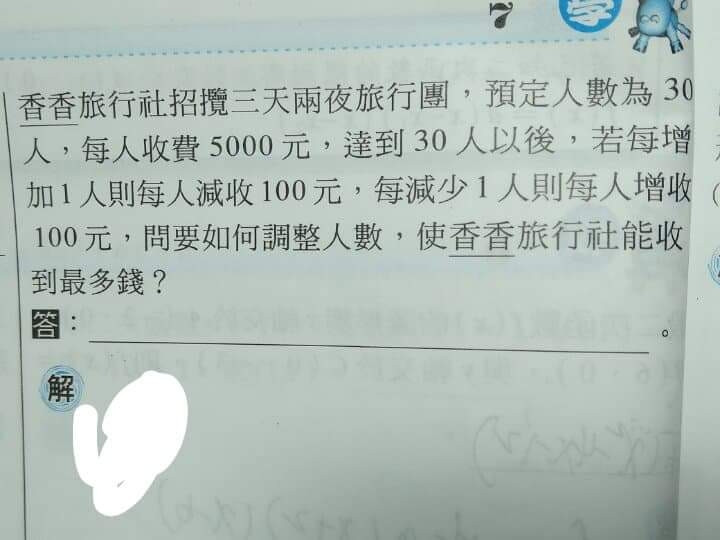 7
學
香香旅行社招攬三天兩夜旅行團，預定人數為 30
人，每人收費 5000 元，達到 30 人以後，若每增
加 1 人則每人減收 100 元，每減少 1 人則每人增收
100 元，問要如何調整人數，使香香旅行社能收
到最多錢？
答：。
解